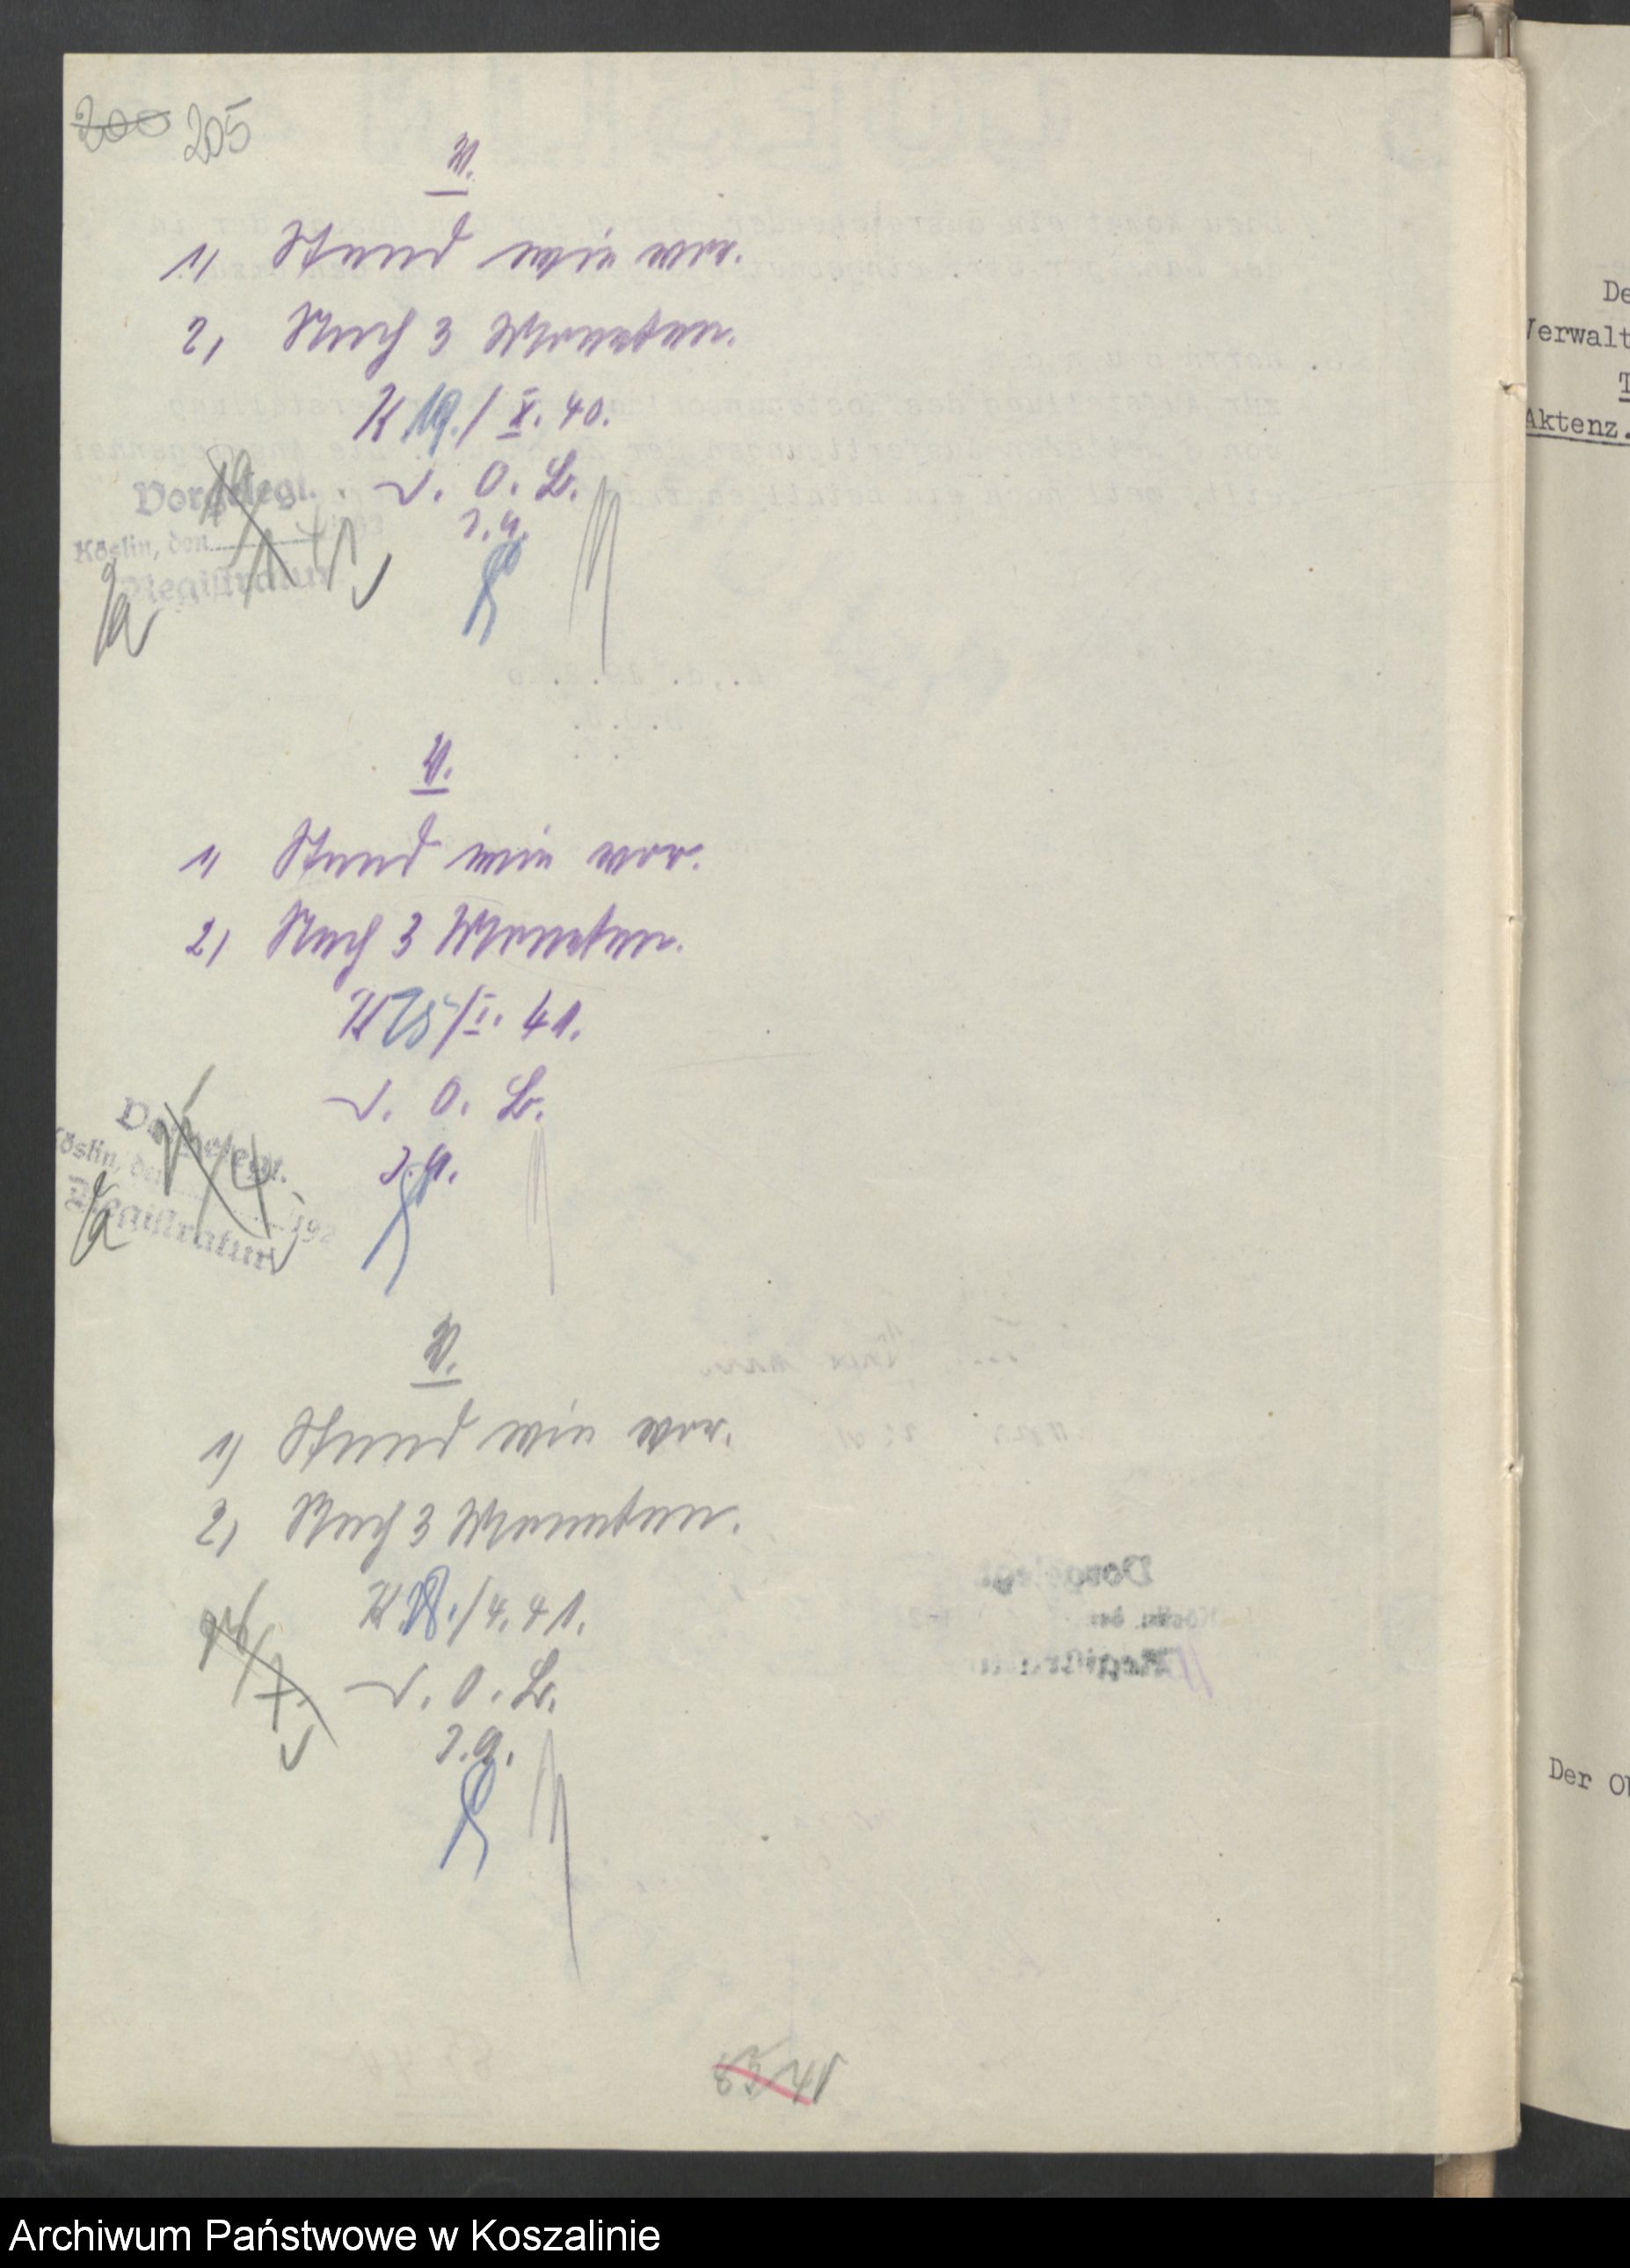 200 205
V.
1) Stand wie vor.
2) Nach 3 Monaten.
K 19./X. 40.
D. O. B.
J. A.
Vorgelegt.
Köslin, den 193
Registratur
V.
1) Stand wie vor.
2) Nach 3 Monaten.
K 25/I. 41.
D. O. B.
J. A.
Vorgelegt.
Köslin, den 192
Registratur
V.
1) Stand wie vor.
2) Nach 3 Monaten.
K 18./4. 41.
D. O. B.
J. A.
De
Verwalt
T
Aktenz.
Der Ob
Archiwum Państwowe w Koszalinie